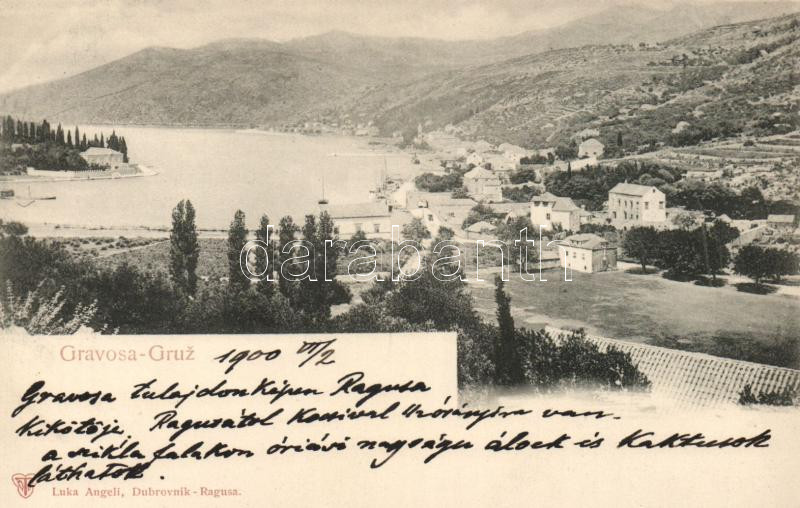 Gravosa-Gruž 1900 VII/2
Gravosa tulajdonképen Ragusa
Kikötője. Ragusától Kocsival ½ órányira van.
a sziklafalakon óriási nagyságu áloek és Kaktusok
láthatók.
Luka Angeli, Dubrovnik-Ragusa.
darabanth.com